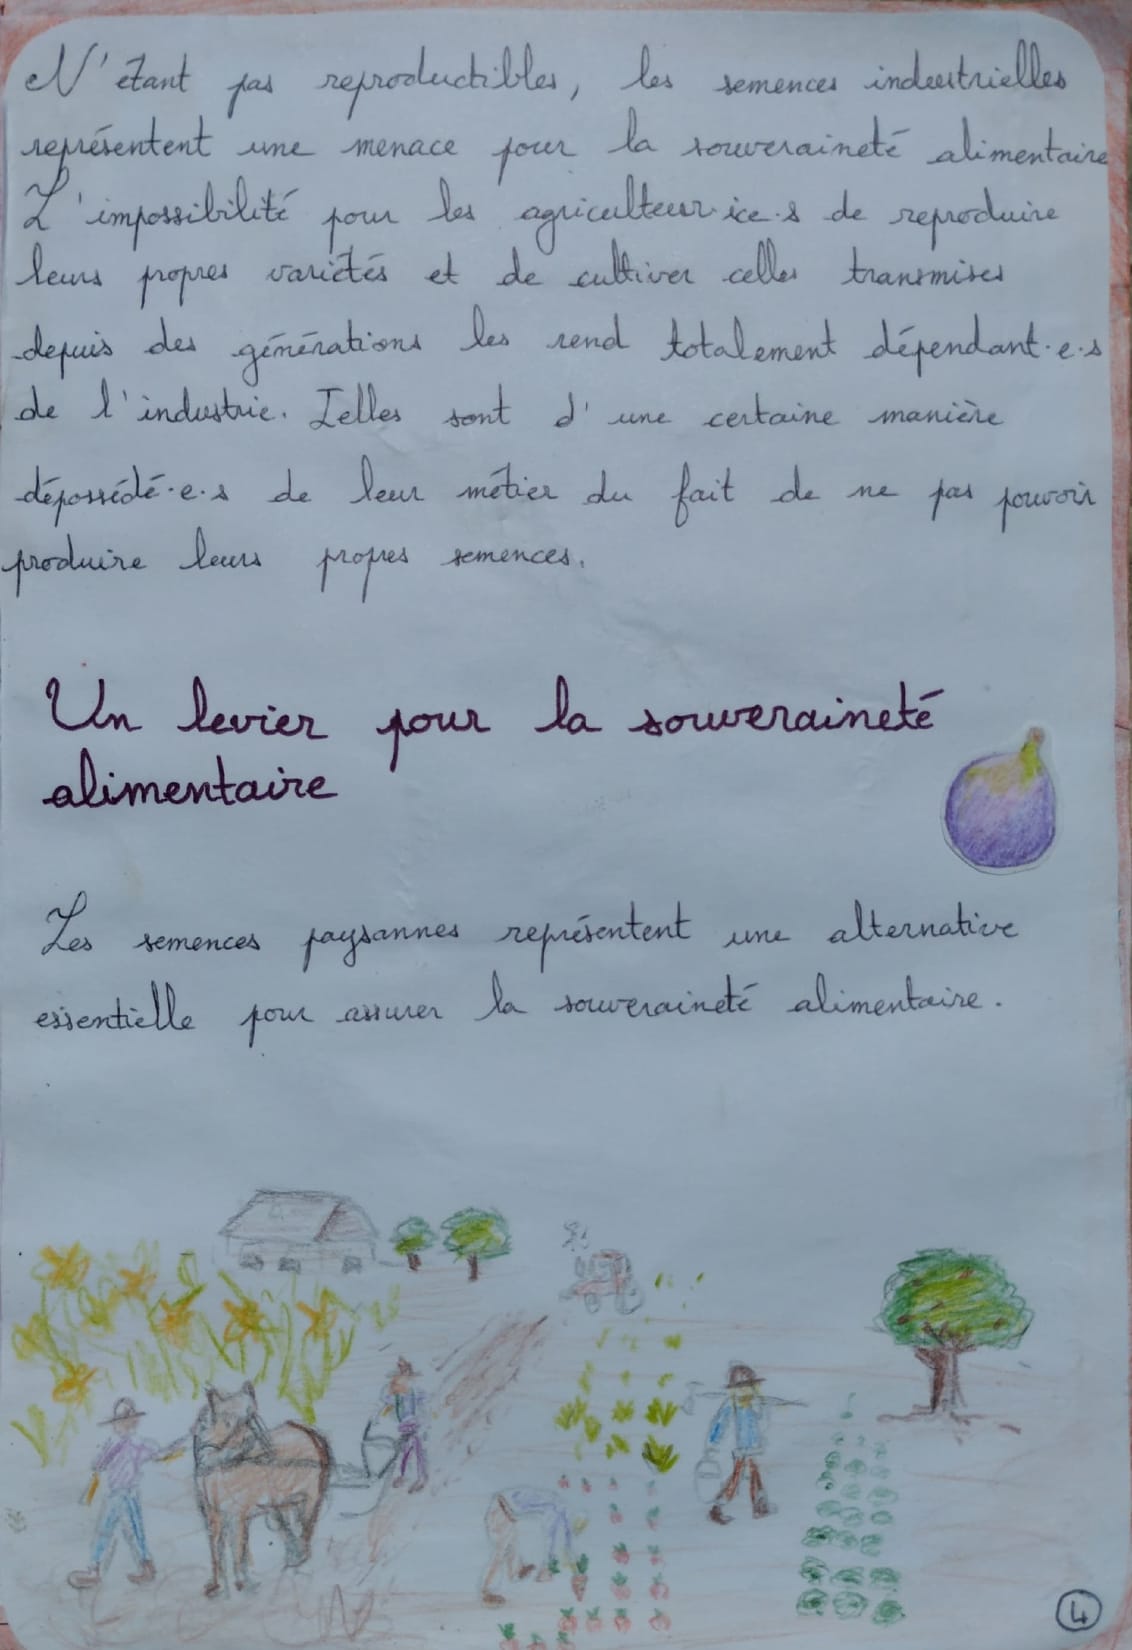 N'étant pas reproductibles, les semences industrielles
représentent une menace pour la souveraineté alimentaire
L'impossibilité pour les agriculteur·ice·s de reproduire
leurs propres variétés et de cultiver celles transmises
depuis des générations les rend totalement dépendant·e·s
de l'industrie. Ielles sont d'une certaine manière
dépossédé·e·s de leur métier du fait de ne pas pouvoir
produire leurs propres semences.
Un levier pour la souveraineté
alimentaire
Les semences paysannes représentent une alternative
essentielle pour assurer la souveraineté alimentaire.
4